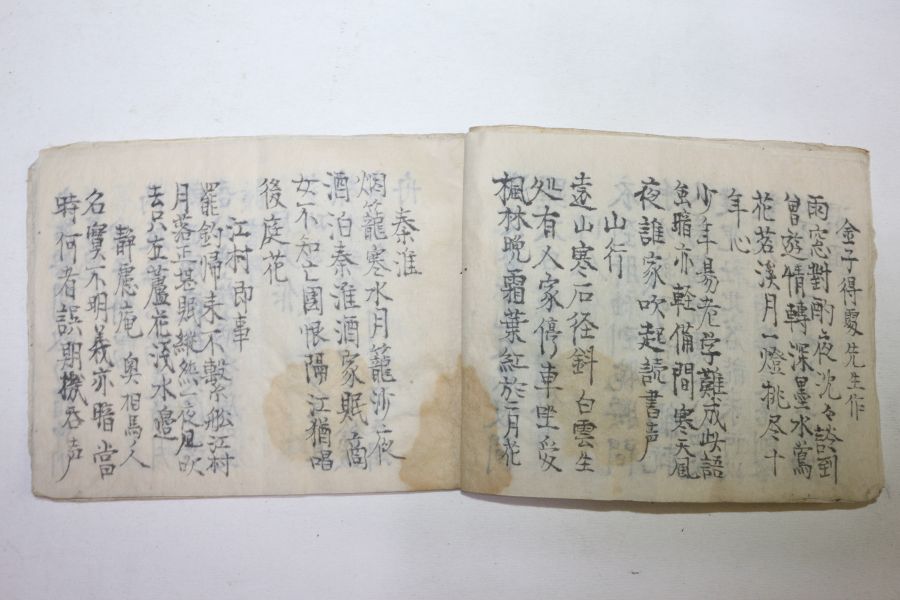 金子得處先生作
雨窓對酌夜沈々談到
曽遊情轉深墨水鶯
花苕溪月一燈挑尽十
年心
少年易老学難成此語
亦軽備間寒天風
夜誰家吹起読書声
山行
遠山寒石径斜白雲生
処有人家停車坐愛
楓林晩霜葉紅於二月花
秦淮
烟籠寒水月籠沙夜
酒泊秦淮酒家眠商
女不知亡国恨隔江猶唱
後庭花
江村即事
罷釣帰来不繋舩江村
月落正甚眠縦然一夜風吹
去只在蘆花浅水邉
靜慮庵 奥相馬人
名實不明義亦暗當
時何者誤期機呑声